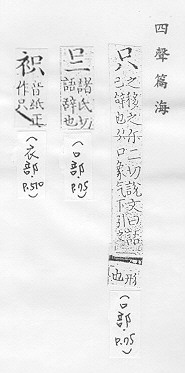 四聲篇海
只 之移之尒二切說文曰語
已辞也从口象气下引之形
也
(口部.P.75)
諸氏切
語辞也
(口部.P.75)
音纸正
作只
(衣部.P.510)